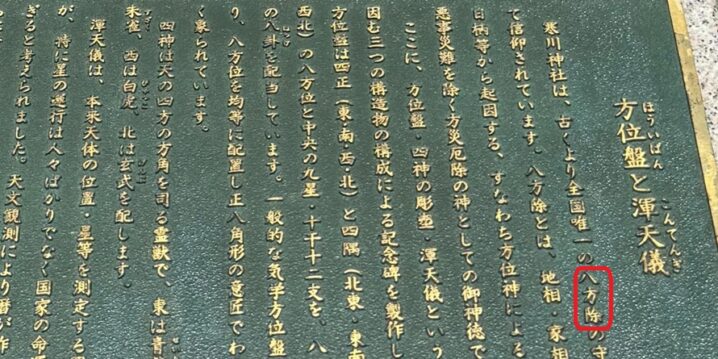 方位盤と渾天儀
ほういばん
こんてんぎ
寒川神社は、古くより全国唯一の八方除の
て信仰されています。八方除とは、地相・家相
日柄等から起因する、すなわち方位神による
悪事災難を除く方災厄除の神としての御神徳で
ここに、方位盤・四神の彫塑・渾天儀という
因む三つの構造物の構成による記念碑を製作し
方位盤は四正（東・南・西・北）と四隅（北東・東南
西北）の八方位と中央の九星・十干十二支を 八
の八卦を配当しています。一般的な気学方位盤
り、八方位を均等に配置し正八角形の意匠でわ
く象られています。
四神は天の四方の方角を司る霊獣で、東は青
朱雀、西は白虎、北は玄武を配します。
渾天儀は、本来天体の位置・星等を測定する
が、特に星の運行は人々ばかりでなく国家の命
ぎると考えられました。天文観測により暦が作